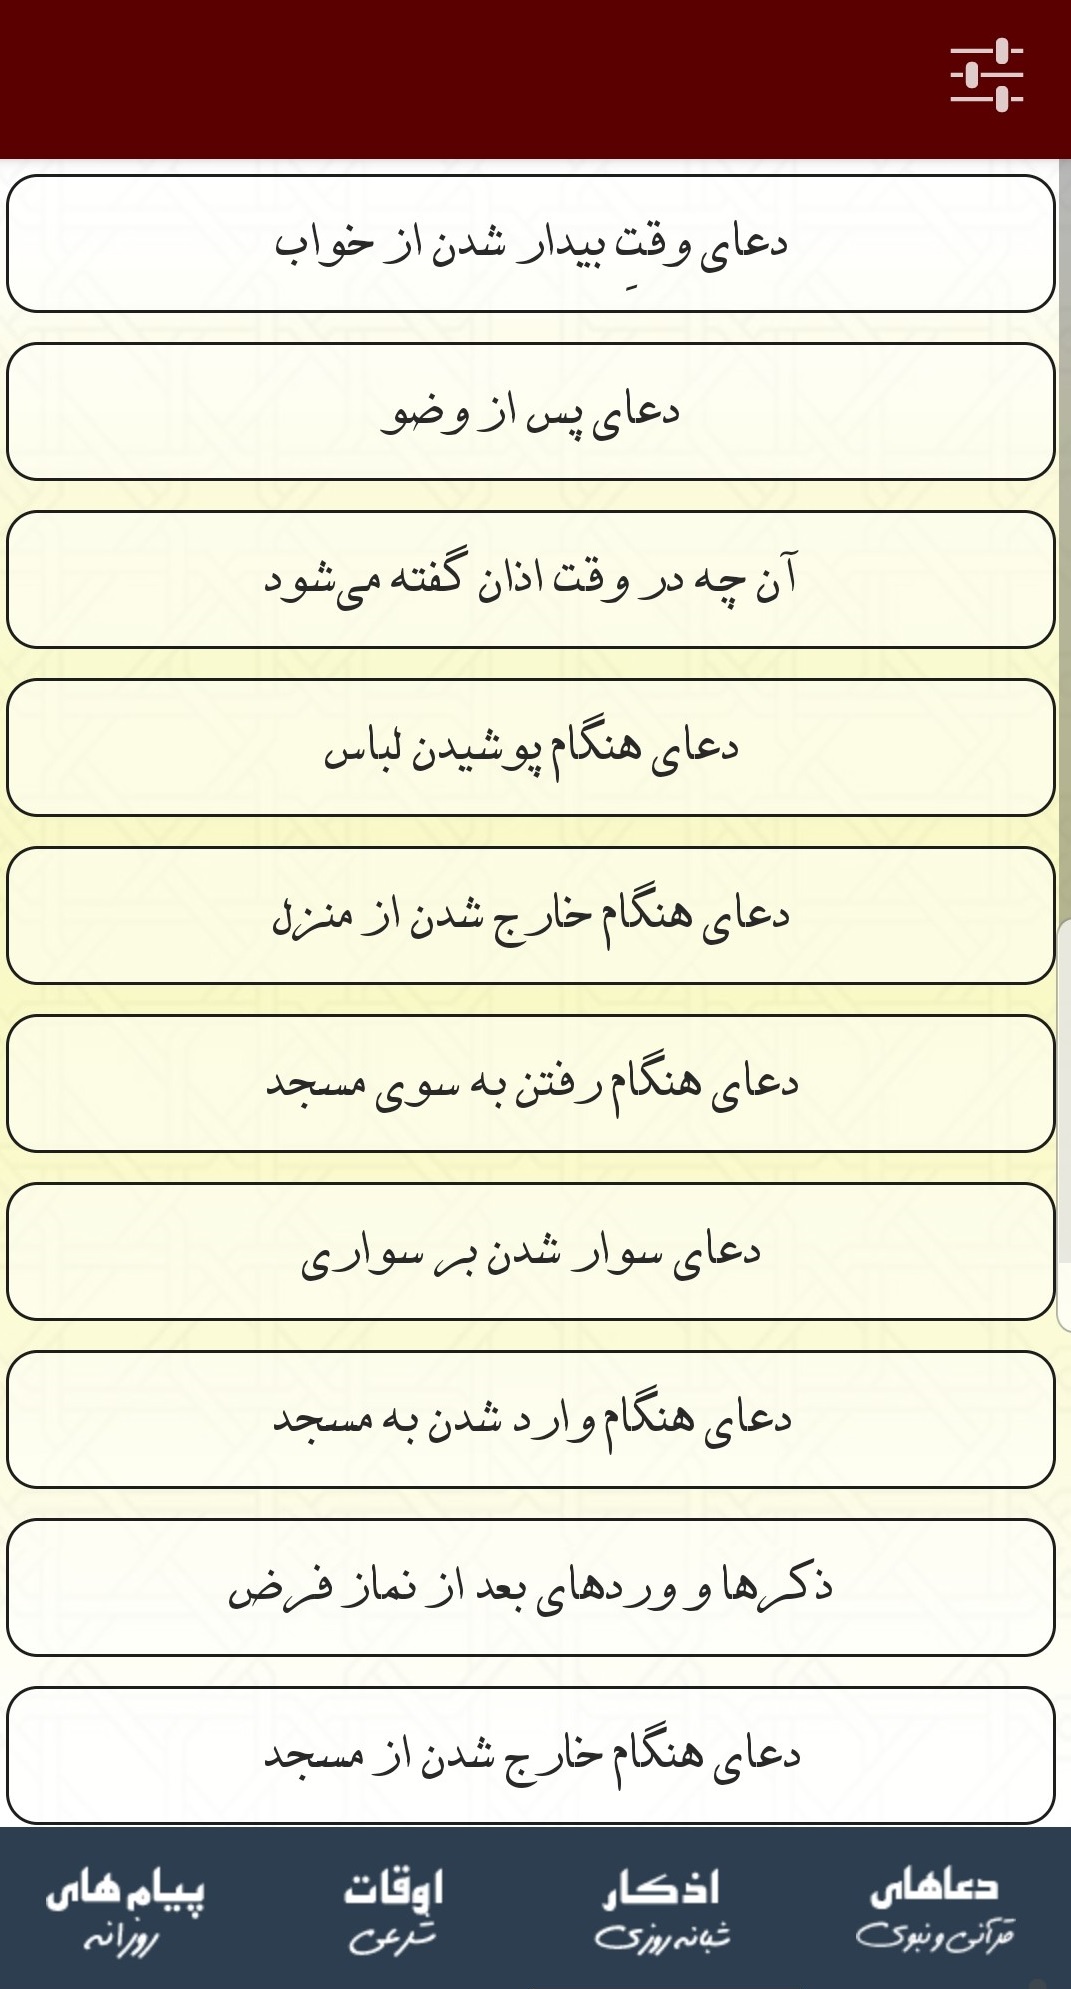 دعای وقتِ بیدار شدن از خواب
دعای پس از وضو
آن چه در وقت اذان گفته می‌شود
دعای هنگام پوشیدن لباس
دعای هنگام خارج شدن از منزل
دعای هنگام رفتن به سوی مسجد
دعای سوار شدن بر سواری
دعای هنگام وارد شدن به مسجد
ذکرها و وردهای بعد از نماز فرض
دعای هنگام خارج شدن از مسجد
دعاهای
قرآنی و نبوی
اذکار
شبانه روزی
اوقات
شرعی
پیام های
روزانه